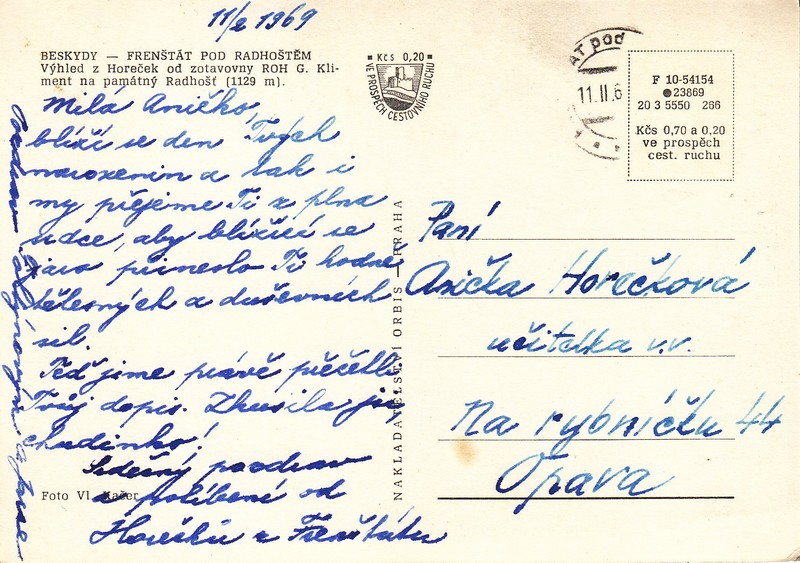 11/2 1969
BESKYDY — FRENŠTÁT POD RADHOŠTĚM
Výhled z Horeček od zotavovny ROH G. Kli-
ment na památný Radhošť (1129 m).
Milá Aničko,
blíží se den Tvých
narozenin a tak i
my přejeme Ti z plna
srdce, aby blížící se
jaro přineslo Ti hodně
tělesných a duševních
sil.
Teď jsme právě přečetli
Tvůj dopis. Zkusila jsi,
chudinko!
Srdečný pozdrav
a políbení od
Horečků z Frenštátu
Foto Vl.
Kčs 0,20
VE PROSPĚCH CESTOVNÍHO RUCHU
NAKLADATELSTVÍ ORBIS — PRAHA
AT pod
11.II.6
F 10-54154
23869
20 3 5550 266
Kčs 0,70 a 0.20
ve prospěch
cest. ruchu
Paní
Anička Horečková
učitelka v.v.
Na rybníčku 44
Opava